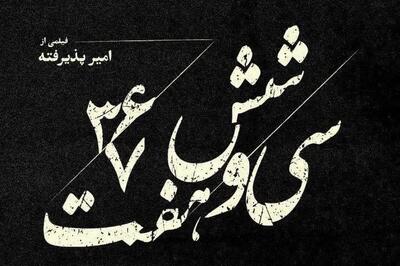 فیلمی از
امیر پذیرفته
سی و شش
هفت
۳۶
۷